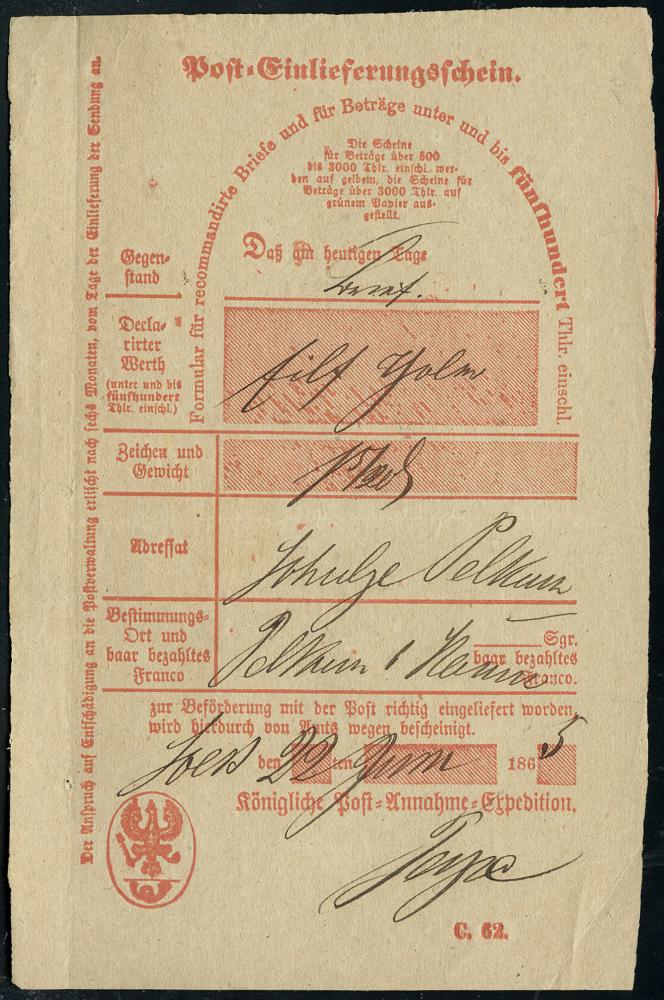 Post-Einlieferungsschein.
Formular für recommandirte Briefe und für Beträge unter und bis fünfhundert Thlr. einschl.
Die Scheine
für Beträge über 500
bis 3000 Thlr. einschl. wer-
den auf gelbem, die Scheine für
Beträge über 3000 Thlr. auf
grünem Papier aus-
gestellt.
Der Anspruch auf Entschädigung an die Postverwaltung erlischt nach sechs Monaten, vom Tage der Einlieferung der Sendung an.
Daß am heutigen Tage
Gegen-
stand
Brief.
Decla-
rirter
Werth
(unter und bis
fünfhundert
Thlr. einschl.)
Zeichen und
Gewicht
Adressat
Schulze Pelkum
Bestimmungs-
Ort und
baar bezahltes
Franco
Pelkum
Sgr.
baar bezahltes
Franco.
zur Beförderung mit der Post richtig eingeliefert worden,
wird hierdurch von Amts wegen bescheinigt.
den 22 ten Juni 1865
Königliche Post-Annahme-Expedition.
C. 62.